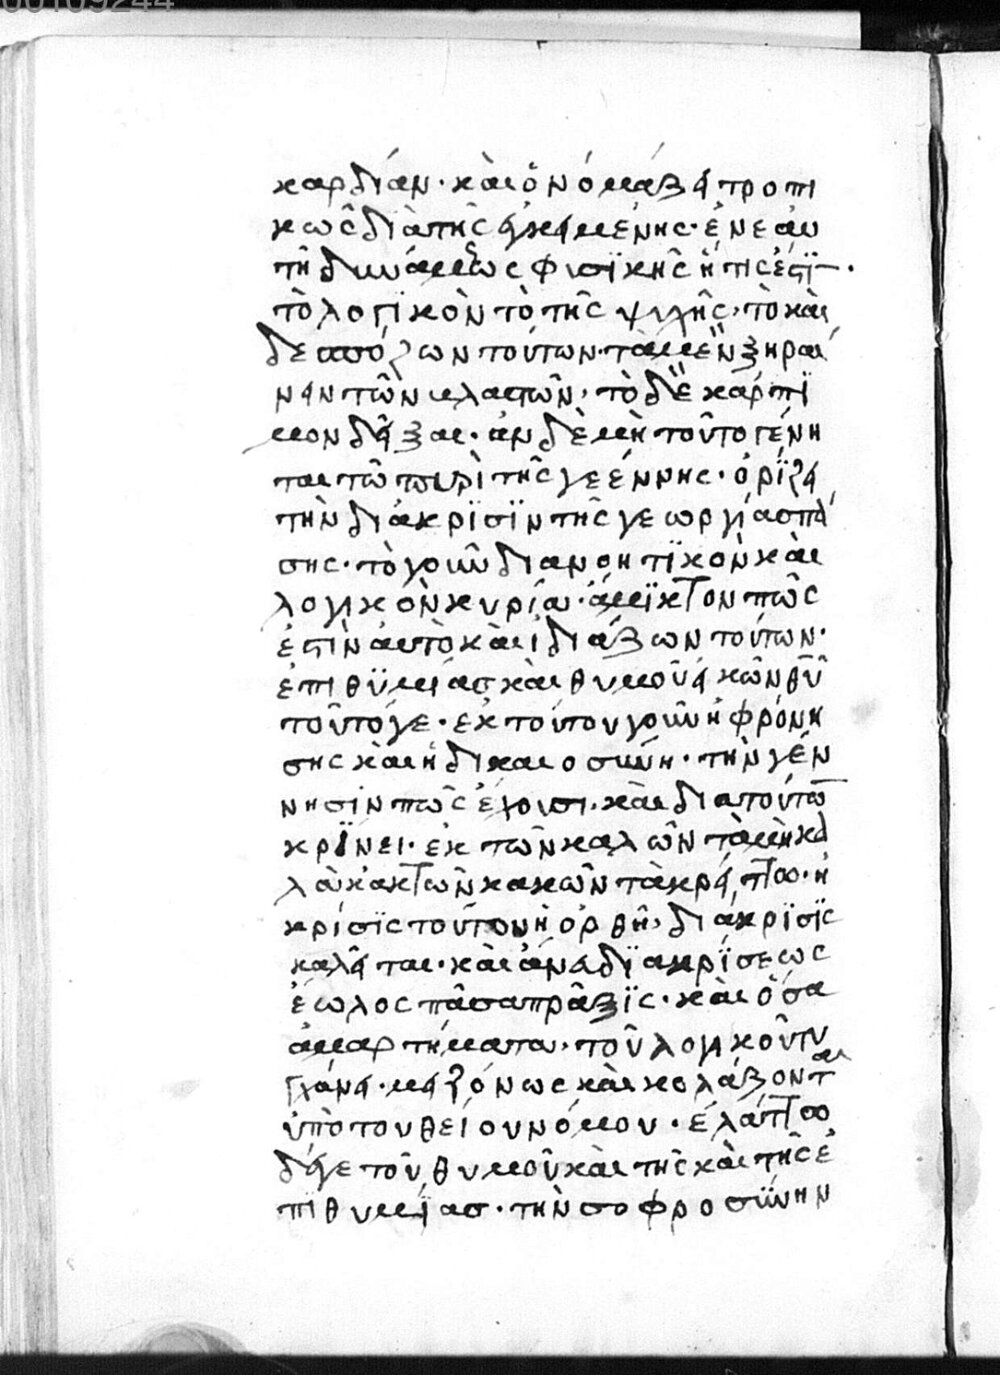 00109244
καρδίαν· κὰι ὀνόμαζει τροπι
κῶς διὰ τῆς εἰκειμένης· ἐν ἑαυ
τῆ δυνάμεως φισϊκῆς ἥτις ἐστϊ·
τὸ λογϊκὸν τὸ τῆς ψυχῆς, τὸ κὰι
δεσπόζων τούτων· τὰ μὲν ξηραί
νειν τῶν κλαστῶν, τὸ δὲ κάρπϊ
μον δεῖξαι· ἀν δὲ μὴ τοῦτο γένη
ται τῶ πυρὶ τῆς γεέννης· ὁρϊζει
τὴν διάκρϊσϊν τῆς γεωργίας πά
σης· τὸ γοῦν διανοητϊκὸν κὰι
λογικὸν κυρίω· ἄμϊκτον πῶς
ἐστὶν αυτὸ κὰι ἰδιάζων τούτων·
ἐπιθϋμίασ κὰι θυμοῦ εἰκὼν θῦ
τοῦτο γε· ἐκ τούτου γοῦν ἡ φρόνη
σης κὰι ἡ δικαιοσύνη· τὴν γέν
νησιν πῶς ἔχουσι· κὰι διατούτω
κρϊνει· ἐκ τῶν καλῶν τὰ μὴ κα
λὰ κἀκ τῶν κακῶν τὰ κρείττω· ἡ
κρίσϊς τούτου ἡ ὀρθὴ, διάκρϊσϊς
καλεῖται· κὰι ἀνεϋ διακρϊσεως
ἕωλος πᾶσα πρᾶξϊς· κὰι ὅσα
ἁμαρτήματα, τοῦ λογικοῦ τυ
γχάνει· μειζόνως κὰι κολάζονται
ὑπὸ του θείου νόμου· ἐλάττω
δέγε τοῦ θυμοῦ κὰι τῆς κὰι τῆς ἐ
πϊθυμϊασ· τὴν σοφροσϋνην